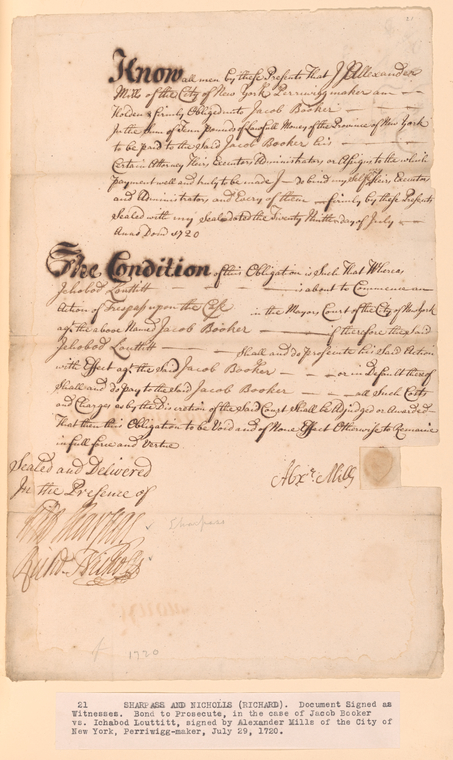 21
Know all men by these Presents that I Alexander
Mills of the City of New York Perriwigmaker am
Holden & firmly Obliged unto Jacob Booker
In the Sum of Tenn pounds of Lawfull Money of the Province of New York
to be paid to the Said Jacob Booker his
Certain Attorney Heirs, Executors Administrators or Assigns to the which
payment well and truly to be made I do bind my Self Heirs Executors
and Administrators and Every of them firmly by these Presents
Sealed with my Seal dated the Twenty Ninth day of July
Anno Dom 1720
The Condition of this Obligation is Such That Whereas
Jehobod Louttitt is about to Commence an
Action of Trespass upon the Case in the Mayors Court of the City of New York
agt the above Named Jacob Booker if therefore the Said
Jehobod Louttitt Shall and do prosecute his Said Action
with Effect agt the Said Jacob Booker or in Default thereof
Shall and do pay to the Said Jacob Booker all Such Costs
and Charges as by the Discretion of the Said Court Shall be Adjudged or Awarded
That then this Obligation to be Void and of None Effect Otherwise to Remaine
in full force and Vertue
Sealed and Delivered
In the Presence of
Alexr Mills
Sharpas
Sharpass
Richd Nicholls
1720
21 SHARPASS AND NICHOLLS (RICHARD). Document Signed as
Witnesses. Bond to Prosecute, in the case of Jacob Booker
vs. Ichabod Louttitt, signed by Alexander Mills of the City of
New York, Perriwigg-maker, July 29, 1720.